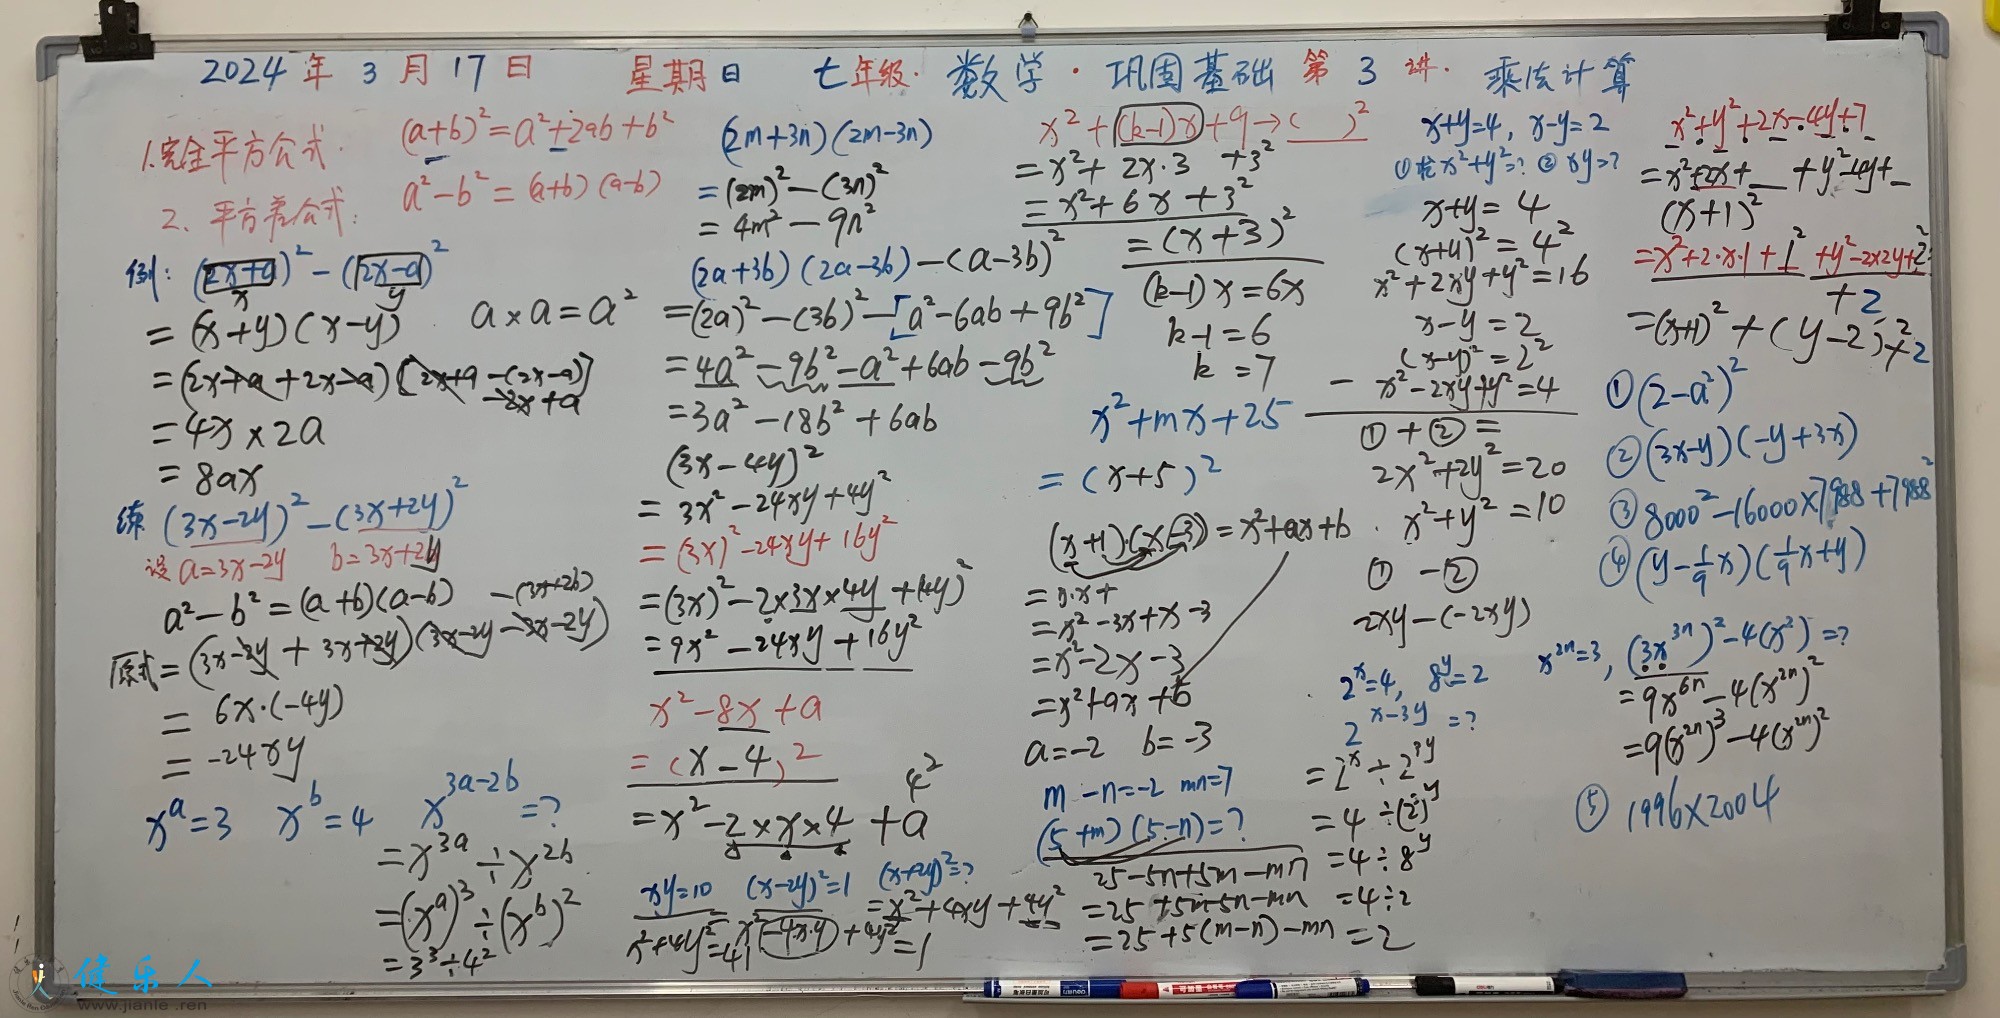 2024年3月17日 星期日 七年级·数学·巩固基础 第3讲·乘法计算
1.完全平方公式· (a+b)²=a²+2ab+b²
2、平方差公式: a²-b²=(a+b)(a-b)
例: (2x+a)²-(2x-a)²
x y
=(x+y)(x-y) a×a=a²
=(2x+a+2x-a)[2x+a-(2x-a)]
-2x+a
=4x×2a
=8ax
练 (3x-2y)²-(3x+2y)²
设 a=3x-2y b=3x+2y
a²-b²=(a+b)(a-b) -(3x+2b)
原式=(3x-2y+3x+2y)(3x-2y-3x-2y)
=6x·(-4y)
=-24xy
xᵃ=3 xᵇ=4 x³ᵃ⁻²ᵇ=?
=x³ᵃ÷x²ᵇ
=(xᵃ)³÷(xᵇ)²
=3³÷4²
(2m+3n)(2m-3n)
=(2m)²-(3n)²
=4m²-9n²
(2a+3b)(2a-3b)-(a-3b)²
=(2a)²-(3b)²-[a²-6ab+9b²]
=4a²-9b²-a²+6ab-9b²
=3a²-18b²+6ab
(3x-4y)²
=3x²-24xy+4y²
=(3x)²-24xy+16y²
=(3x)²-2×3x×4y+(4y)²
=9x²-24xy+16y²
x²-8x+a
=(x-4)²
4²
=x²-2×x×4+a
xy=10 (x-2y)²=1 (x+2y)²=?
=x²+4xy+4y²
=x²-4x·y+4y²=1
x²+4y²=41
x²+(k-1)x+9→( )²
=x²+2x·3+3²
=x²+6x+3²
=(x+3)²
(k-1)x=6x
k-1=6
k=7
x²+mx+25
=(x+5)²
(x+1)·(x-3)=x²+ax+b
=x·x+
=x²-3x+x-3
=x²-2x-3
=x²+ax+b
a=-2 b=-3
m-n=-2 mn=7
(5+m)(5-n)=?
25-5n+5m-mn
=25+5m-5n-mn
=25+5(m-n)-mn
x+y=4, x-y=2
①求x²+y²=? ②xy=?
x+y=4
(x+y)²=4²
x²+2xy+y²=16
x-y=2
(x-y)²=2²
- x²-2xy+y²=4
①+②=
2x²+2y²=20
x²+y²=10
①-②
2xy-(-2xy)
2ˣ=4, 8ʸ=2
2ˣ⁻³ʸ=?
=2ˣ÷2³ʸ
=4÷(2³)ʸ
=4÷8ʸ
=4÷2
=2
x²+y²+2x-4y+7
=x²+2x+_+y²-4y+_
(x+1)²
=x²+2·x·1+1²+y²-2×2y+2²
+2
=(x+1)²+(y-2)²+2
①(2-a²)²
②(3x-y)(-y+3x)
③8000²-16000×7988+7988²
④(y-1/9x)(1/9x+y)
x²ⁿ=3, (3x³ⁿ)²-4(x²)=?
=9x⁶ⁿ-4(x²ⁿ)²
=9(x²ⁿ)³-4(x²ⁿ)²
⑤1996×2004
健乐人
www.jianle.ren